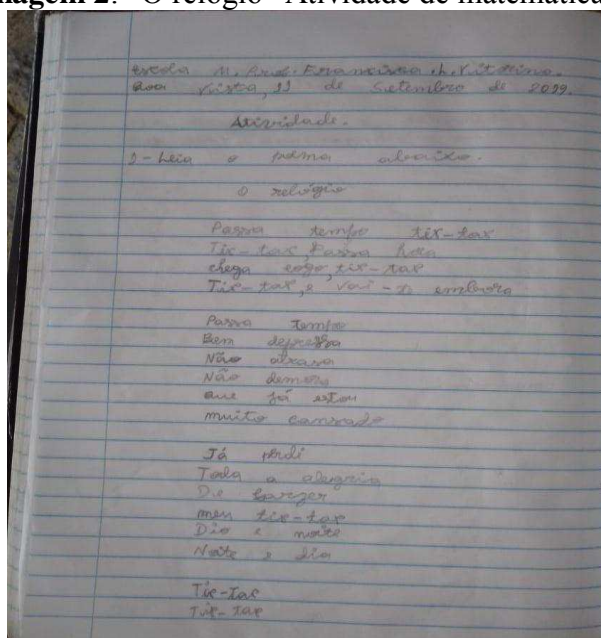 magem 2: "O relógio" Atividade de matemática
escola M. Prof. Francisca
Boa Vista, 11 de Setembro de 2019.
Atividade.
1 - Leia o poema abaixo.
O relógio
Passa tempo tix-tax
Tix-tax, Passa hora
chega logo, tix-tax
Tix-tax, e vai-si embora
Passa tempo
Bem depressa
Não atrasa
Não demora
que já estou
muito cansado
Já perdi
Toda a alegria
De fazer
meu tix-tax
Dia e noite
Noite e dia
Tix-Tax
Tix-Tax